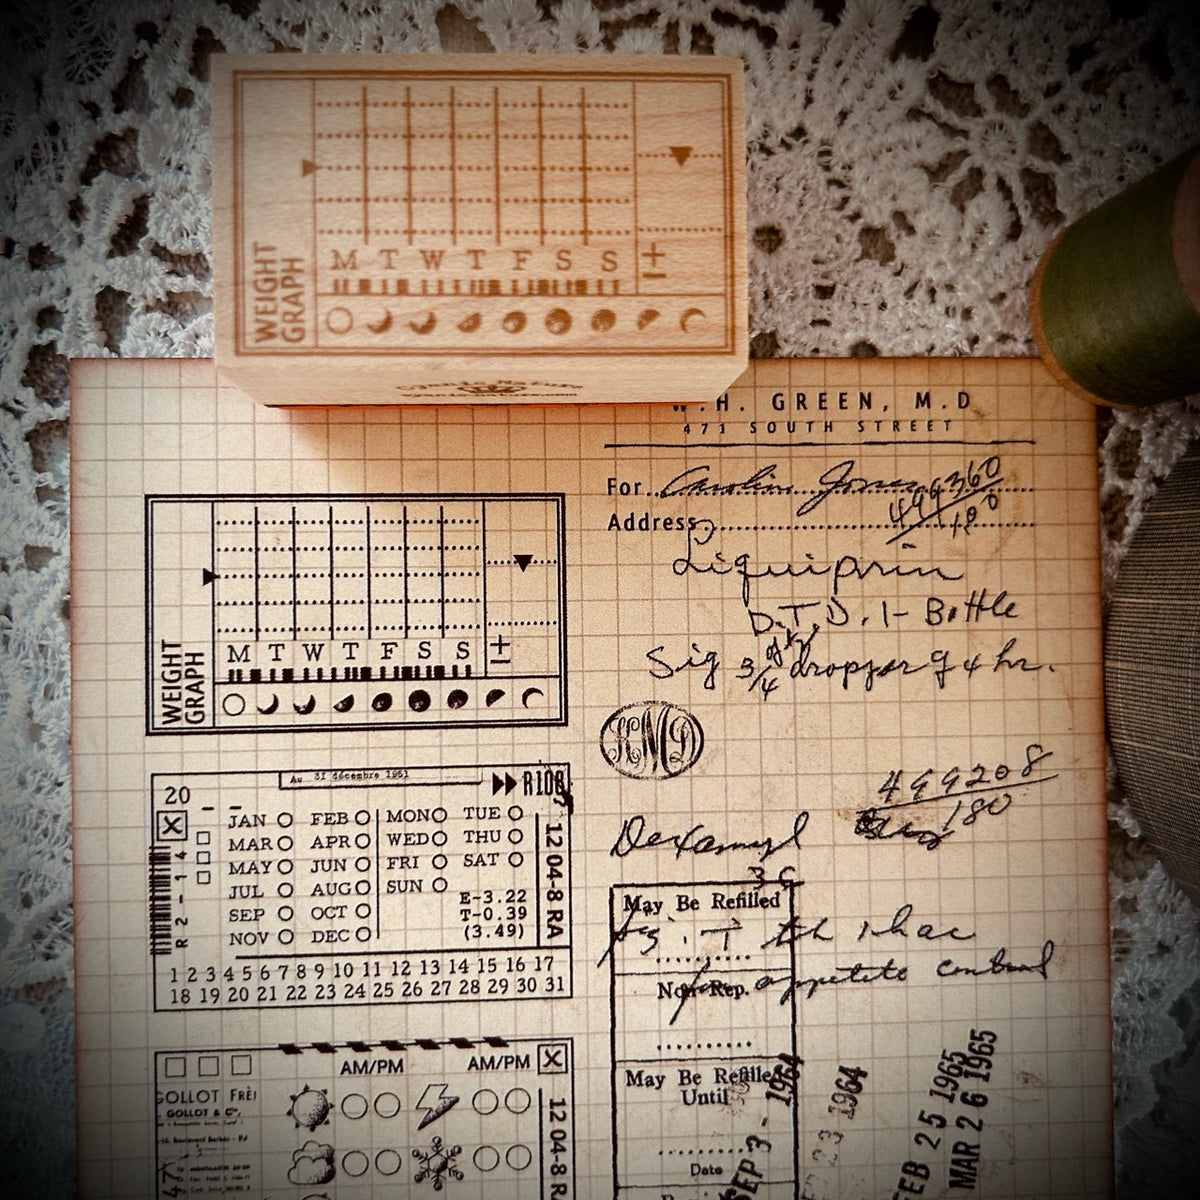 WEIGHT GRAPH
M T W T F S S ±
W.H. GREEN, M.D
471 SOUTH STREET
For Caroline Jones
494360
100
Address
Liquiprin
D.T.D. 1- Bottle
Sig 3/4 dropper q 4 hr.
WEIGHT GRAPH
M T W T F S S ±
KMD
499208
180
Dexamyl
36
May Be Refilled
appetite control
Non Rep.
May Be Refilled
Until
Date
SEP 3 - 1964
23 1964
FEB 25 1965
MAR 26 1965
Au 31 décembre 1951
20
R2-14
JAN FEB MON TUE
MAR APR WED THU
MAY JUN FRI SAT
JUL AUG SUN
SEP OCT
NOV DEC
E-3.22
T-0.39
(3.49)
12 04-8 RA
1 2 3 4 5 6 7 8 9 10 11 12 13 14 15 16 17
18 19 20 21 22 23 24 25 26 27 28 29 30 31
AM/PM AM/PM
GOLLOT FRÈ
GOLLOT & Cie
12 04-8 R
47